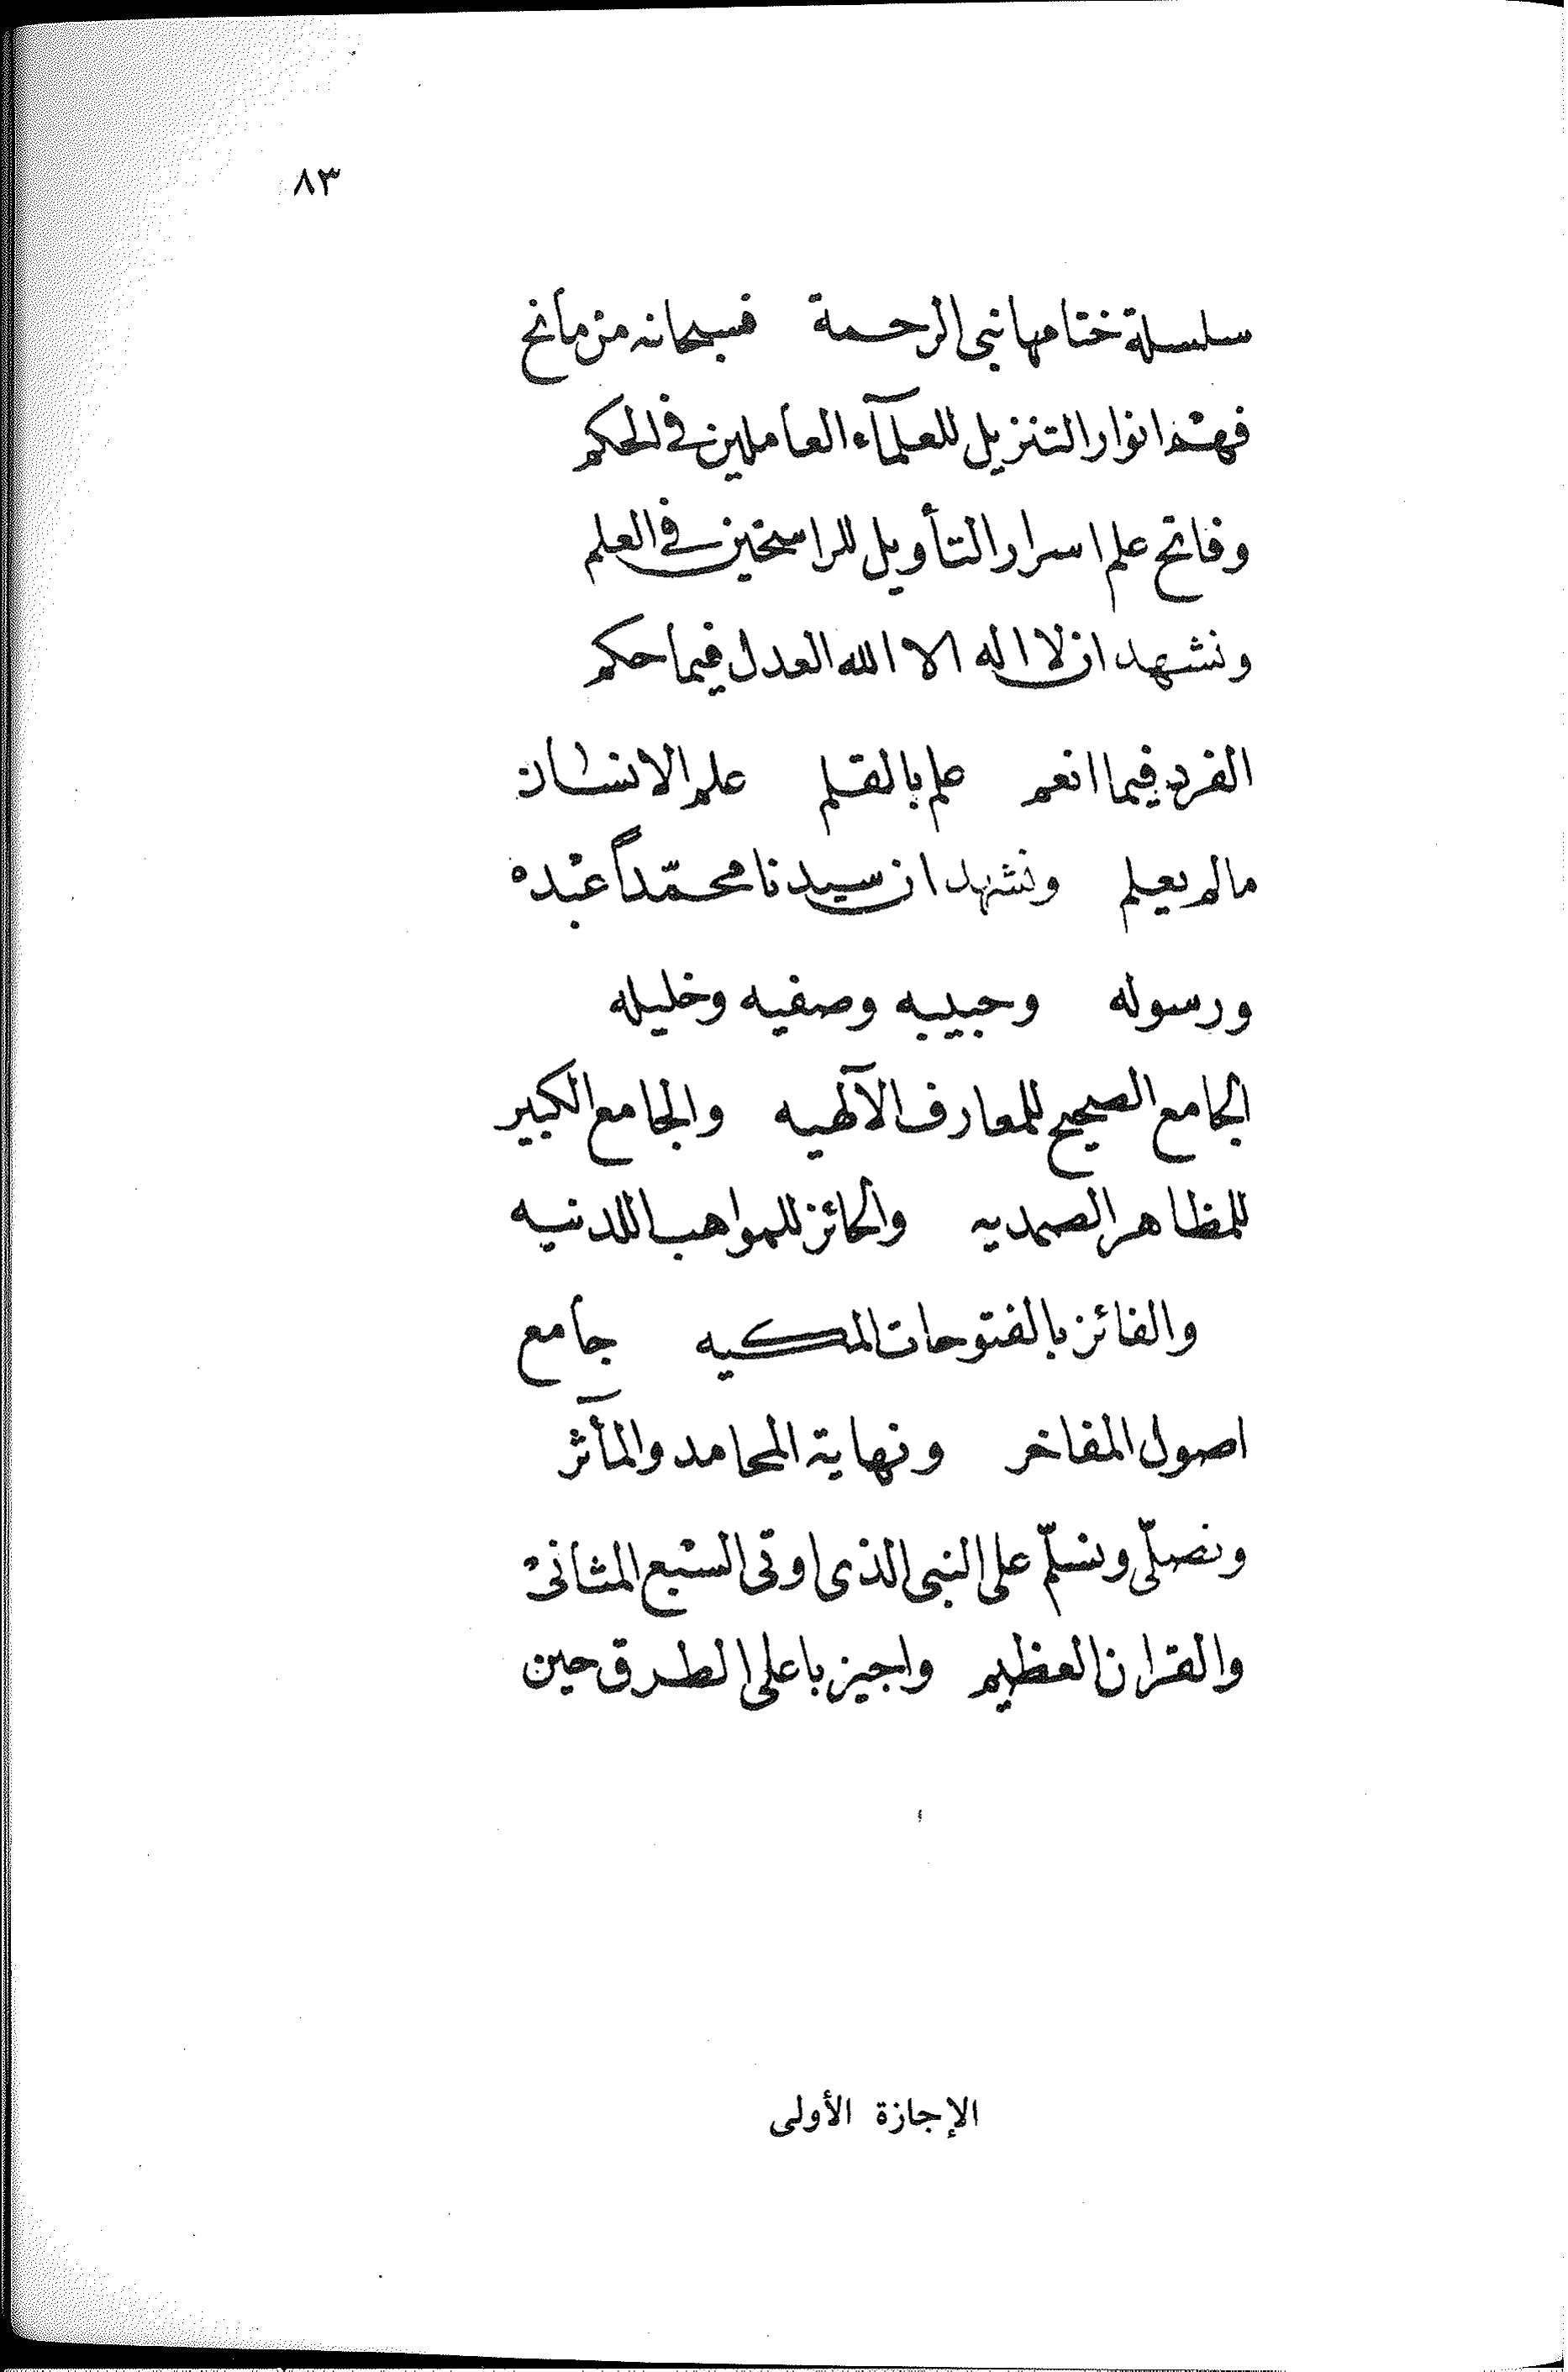 ٨٣
سلسلة ختامها نبى الرحمة فسبحانه من مانح
فهْم انوار التنزيل للعلمآء العاملين فى الحكم
وفاتح علم اسرار التأويل للراسخين فى العلم
ونشهد ان لا اله الا الله العدل فيما حكم
الفرد فيما انعم علم بالقلم علم الانسان
مالم يعلم ونشهد ان سيدنا محمّداً عبْده
ورسوله وحبيبه وصفيه وخليله
الجامع الصحيح للمعارف الآلهيه والجامع الكبير
للمظاهر الصمديه والحائز للمواهب اللدنيه
والفائز بالفتوحات المكيه جامع
اصول المفاخر ونهاية المحامد والمآثر
ونصلّى ونسلّم على النبى الذى اوتى السبْع المثانىْ
والقران العظيم واجيز باعلى الطرق حين
الإجازة الأولى